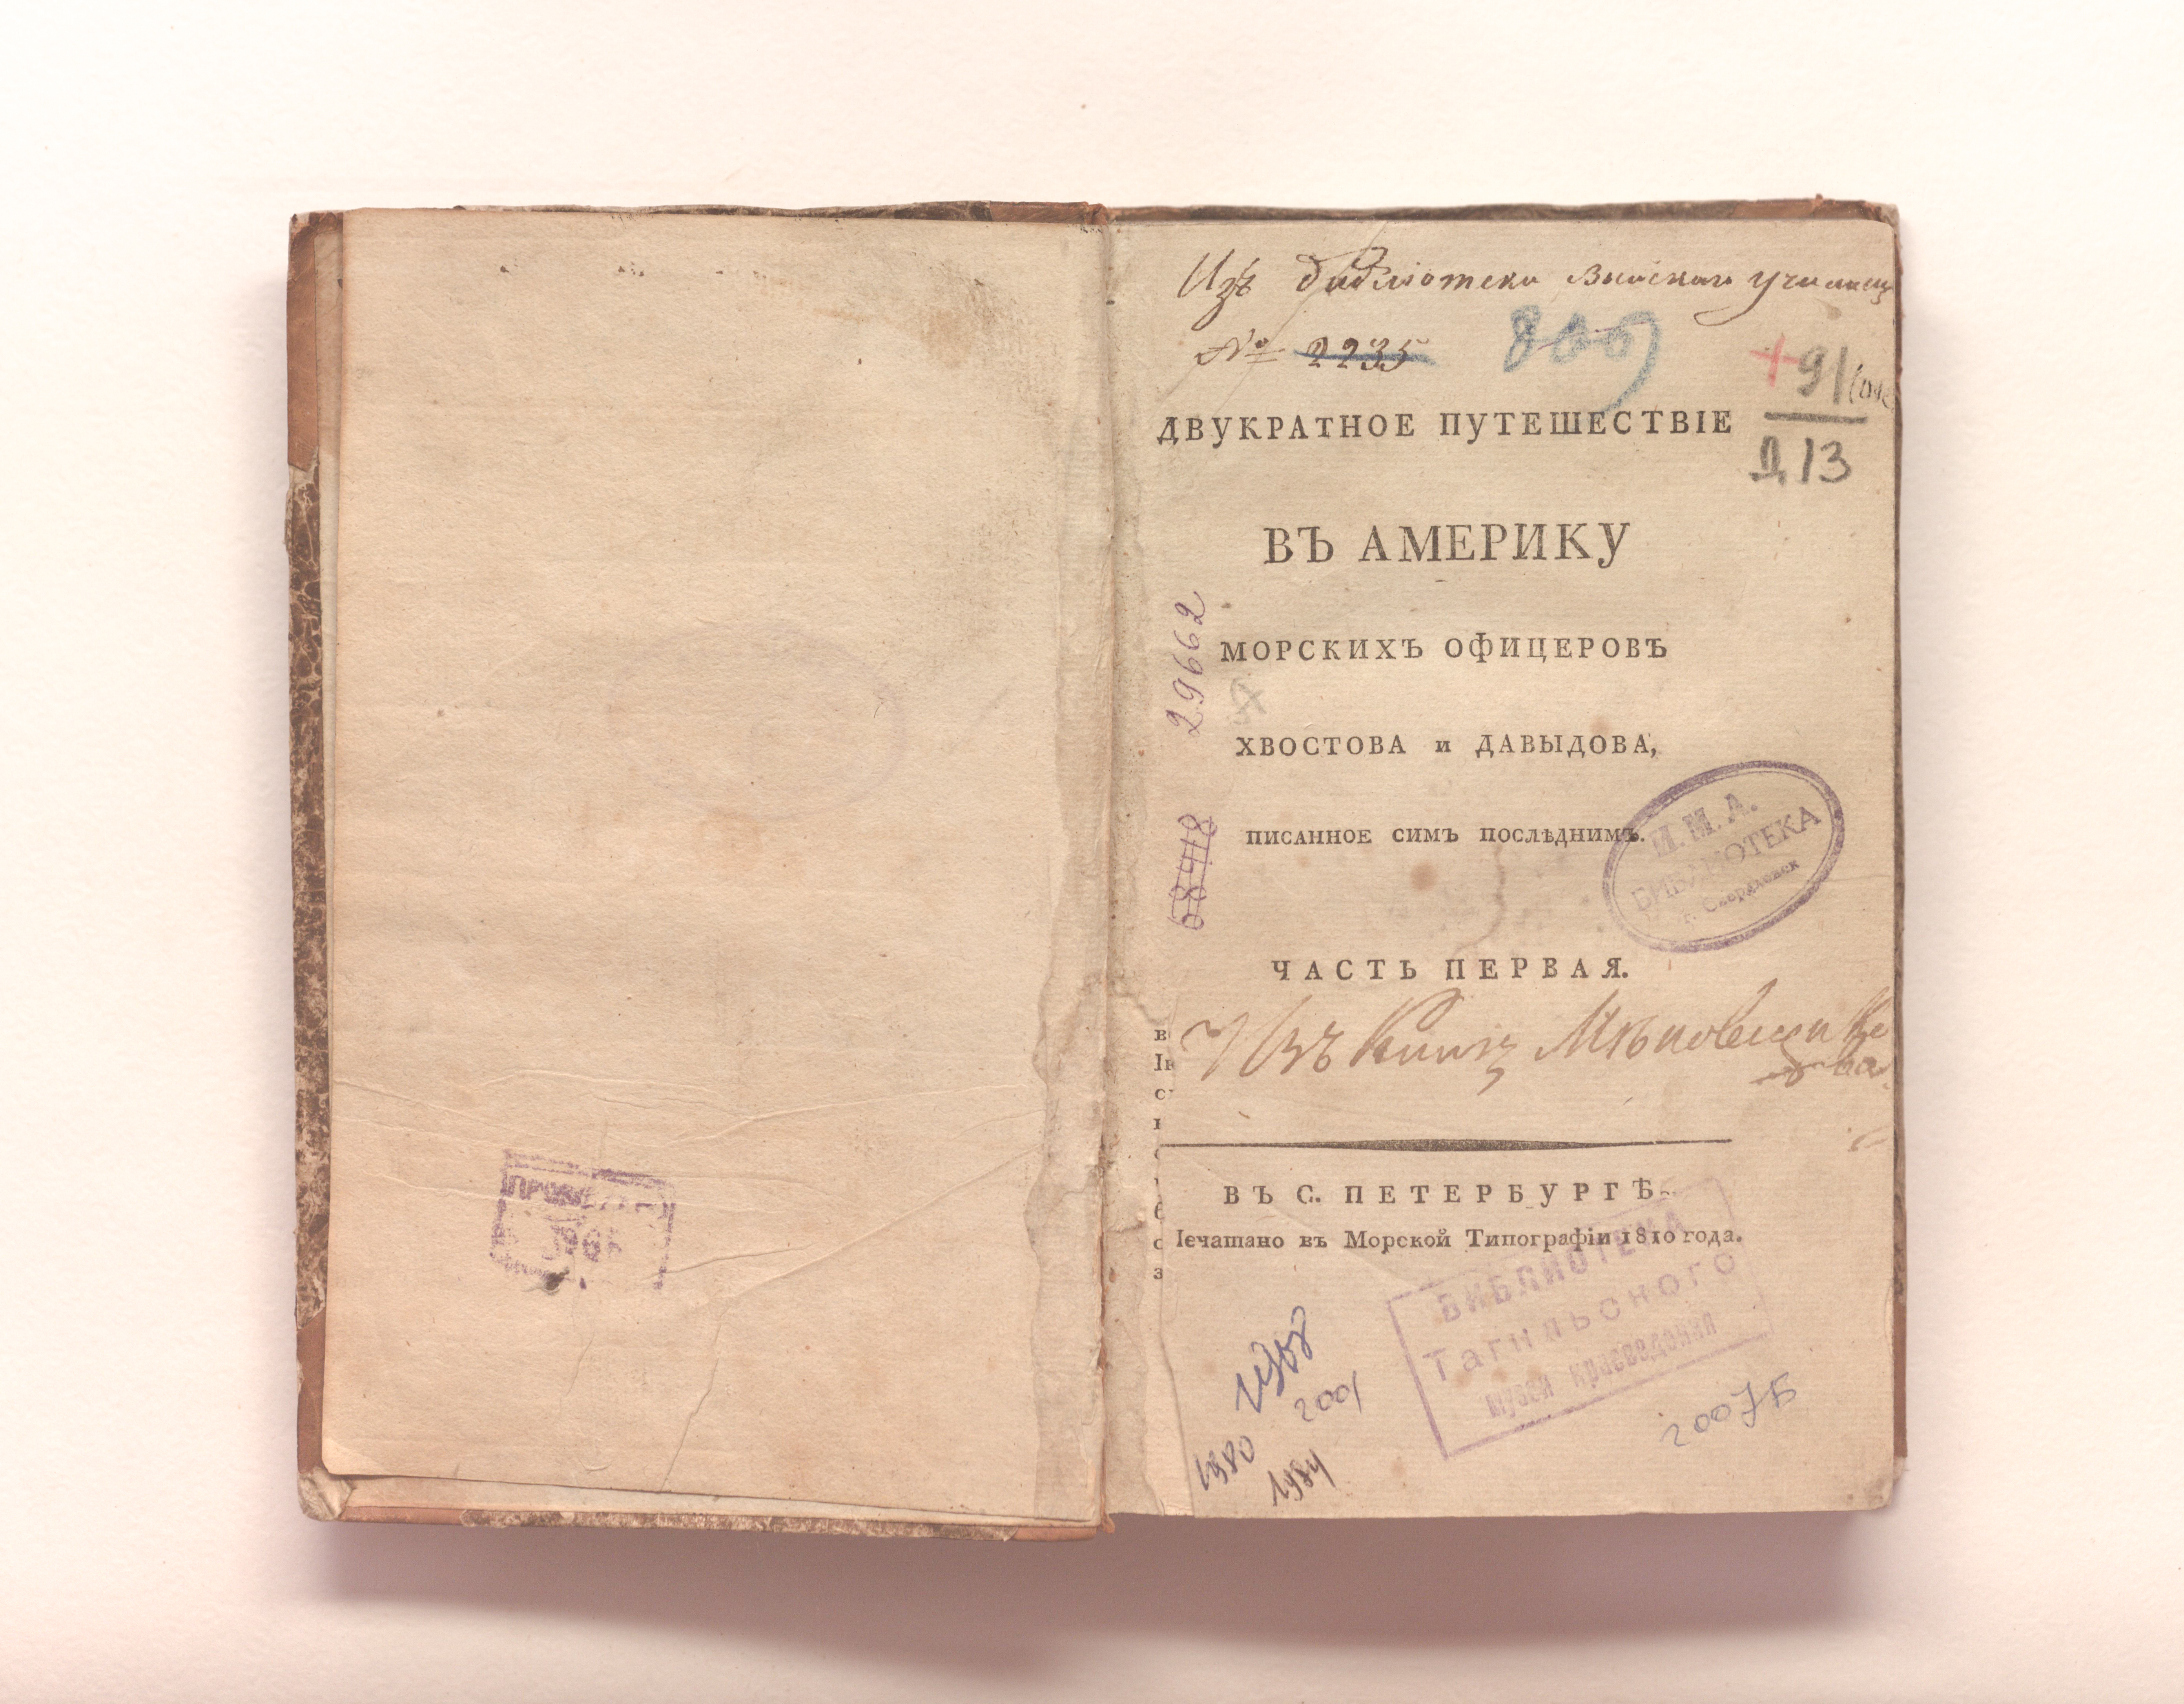 Изъ библіотеки Выйскаго училищ
№ 2235
+91
Д13
ДВУКРАТНОЕ ПУТЕШЕСТВІЕ
ВЪ АМЕРИКУ
МОРСКИХЪ ОФИЦЕРОВЪ
ХВОСТОВА и ДАВЫДОВА,
ПИСАННОЕ СИМЪ ПОСЛѢДНИМЪ.
29662
68418
И. М. А.
БИБЛИОТЕКА
г. Свердловск
ЧАСТЬ ПЕРВАЯ.
Изъ Книгъ
ВЪ С. ПЕТЕРБУРГѢ
Iечатано въ Морской Типографіи 1810 года.
БИБЛИОТЕКА
Тагильского
музея краеведения
2001
1980
1984
2007Б